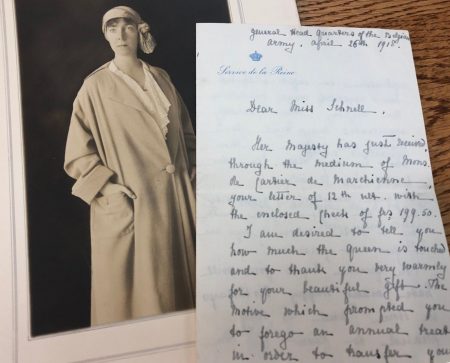 general Head Quarters of the Belgian
army, april 26th 1918.
Service de la Reine
Dear Miss Schnell,
Her Majesty has just received,
through the medium of Mons.
de Cartier de Marchienne,
your letter of 12th ult. with
the enclosed check of frs 199.50.
I am desired to tell you
how much the queen is touched
and to thank you very warmly
for your beautiful gift. The
motive which prompted you
to forego an annual treat
in order to transfer you